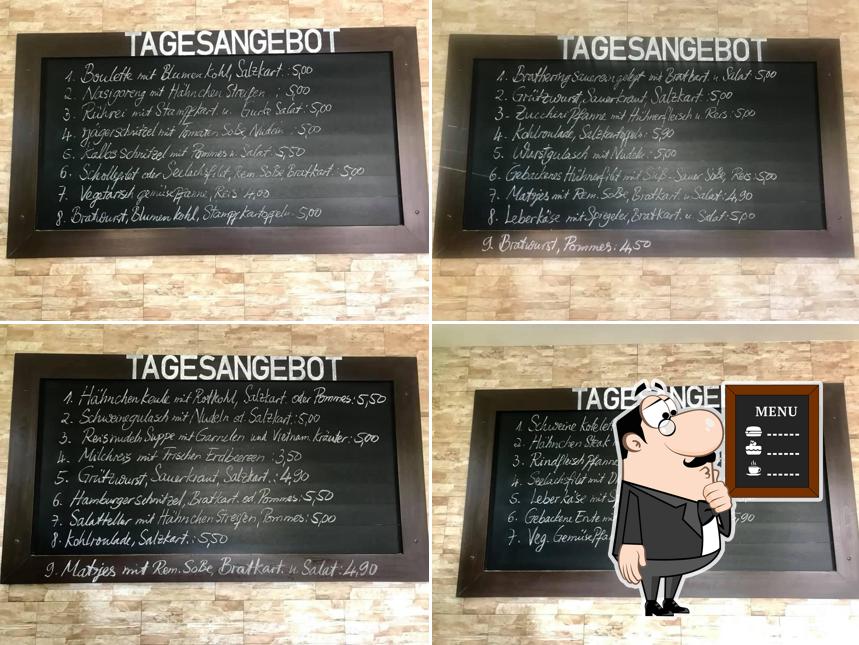 TAGESANGEBOT
1. Boulette mit Blumenkohl, Salzkart.: 5,00
2. Nasigoreng mit Hähnchen Streifen : 5,00
3. Rührei mit Stampfkart. u. Gurke Salat: 5,00
4. Jägerschnitzel mit Tomaten Soße, Nudeln : 5,00
5. Kalbsschnitzel mit Pommes u. Salat: 5,50
6. Schollefilet oder Seelachsfilet, Rem. Soße Bratkart.: 5,00
7. Vegetarisch gemüsepfanne, Reis: 4,00
8. Bratwurst, Blumenkohl, Stampfkartoffeln: 5,00
TAGESANGEBOT
1. Brathering Sauer eingelegt mit Bratkart. u. Salat 5,00
2. Grützwurst, Sauerkraut, Salzkart. 5,00
3. Zucchini Pfanne mit Hühnerfleisch u. Reis: 5,00
4. Kohlroulade, Salzkartoffeln: 5,90
5. Wurstgulasch mit Nudeln: 5,00
6. Gebackenes Hühnerfilet mit Süß-Sauer Soße, Reis: 5,00
7. Matjes mit Rem. Soße, Bratkart. u. Salat: 4,90
8. Leberkäse mit Spiegelei, Bratkart. u. Salat: 5,00
9. Bratwurst, Pommes: 4,50
TAGESANGEBOT
1. Hähnchenkeule mit Rotkohl, Salzkart. oder Pommes: 5,50
2. Schweinegulasch mit Nudeln od. Salzkart.: 5,00
3. Reisnudeln Suppe mit Garnelen und Vietnam. Kräuter: 5,00
4. Milchreis mit frischen Erdbeeren : 3,50
5. Grützwurst, Sauerkraut, Salzkart. : 4,90
6. Hamburger schnitzel, Bratkart. od. Pommes: 5,50
7. Salatteller mit Hähnchen Streifen, Pommes: 5,00
8. Kohlroulade, Salzkart.: 5,50
9. Matjes mit Rem. Soße, Bratkart. u. Salat: 4,90
TAGE NGE
1. Schweine Kotele
2. Hähnchen Steak
3. Rindfleisch Pfanne
4. Seelachsfilet mit D
5. Leberkäse mit S
6. Gebackene Ente m ,90
7. Veg. Gemüsepfa
MENU